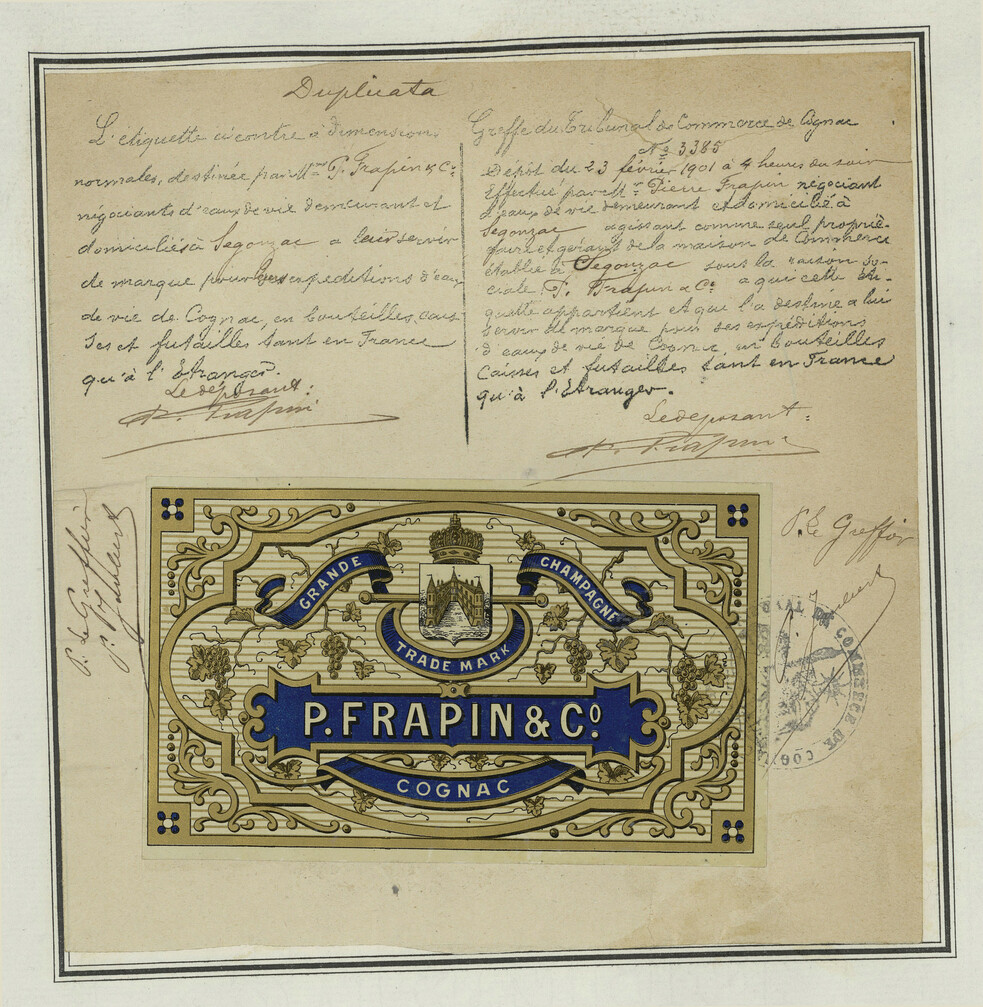 Duplicata
L'étiquette ci contre à dimensions
normales, destinée par Mrs P. Frapin & Cie
négociants d'eaux de vie demeurant et
domiciliés à Segonzac a leur servir
de marque pour les expeditions d'eau
de vie de Cognac, en bouteilles, cais
ses et futailles tant en France
qu'à l'étranger.
Le déposant:
P. Frapin
Greffe du Tribunal de Commerce de Cognac
No 3385
Dépôt du 23 février 1901 à 4 heures du soir
Effectué par Mr Pierre Frapin négociant
d'eaux de vie demeurant et domicilié à
Segonzac agissant comme seul proprié-
taire et gérant de la maison de Commerce
établie à Segonzac sous la raison so-
ciale P. Frapin & Cie a qui cette éti-
quette appartient et qui l'a destiné a lui
servir de marque pour ses expéditions
d'eaux de vie de Cognac en bouteilles
Caisses et futailles tant en France
qu'à l'étranger.
Le déposant:
P. Frapin
P. Le Greffier
P. Le Greffier
GRANDE CHAMPAGNE
TRADE MARK
P. FRAPIN & Co.
COGNAC
DE COMMERCE DE COG